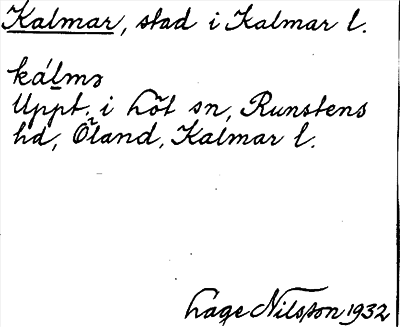 Kalmar, stad i Kalmar l.
kálmə
Uppt. i Löt sn, Runstens
hd, Öland, Kalmar l.
Lage Nilsson 1932